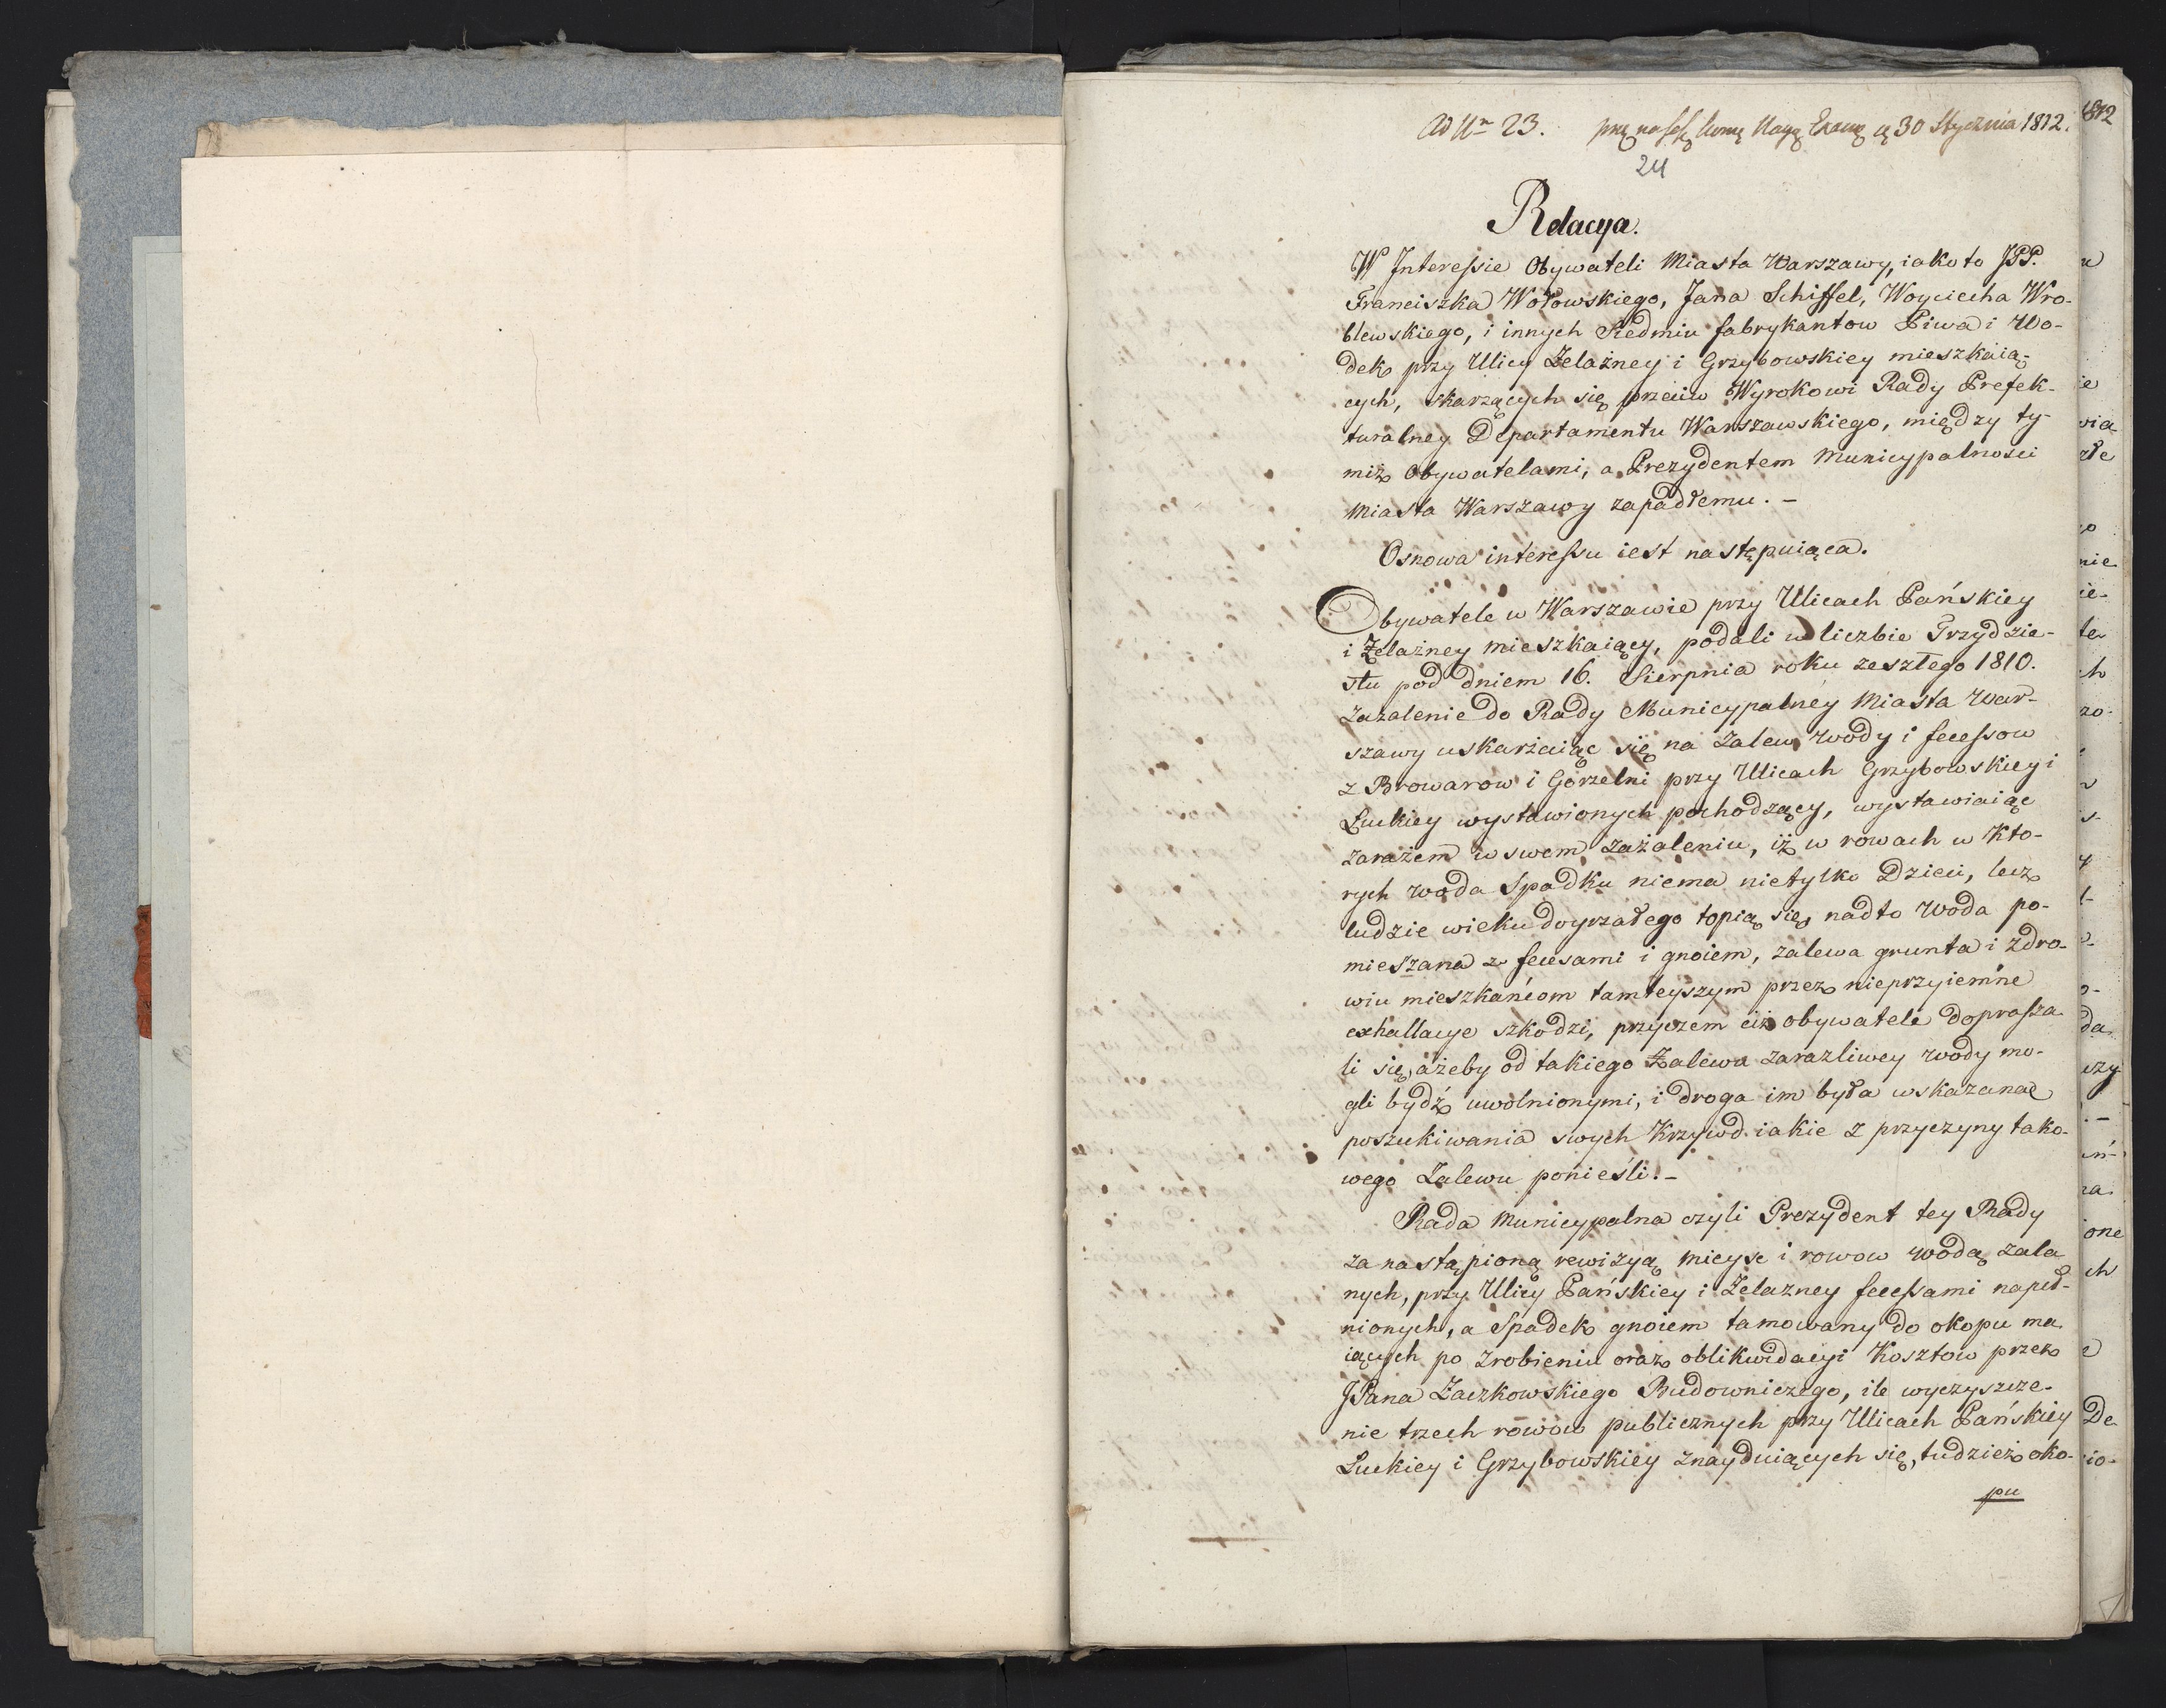 Ad Nr 23. 30 Stycznia 1812.
24
Relacya.
W Interessie Obywateli Miasta Warszawy, iako to JPP.
Franciszka Wołowskiego, Jana Schiffel, Woyciecha Wro-
blewskiego, i innych Siedmiu fabrykantow Piwa i Wo-
dek przy Ulicy Żelazney i Grzybowskiey mieszkaią-
cych, skarżących się przeciw Wyrokowi Rady Prefek-
turalney Departamentu Warszawskiego, między ty-
miż Obywatelami, a Prezydentem Municypalności
Miasta Warszawy zapadłemu. -
Osnowa interessu iest następuiąca.
Obywatele w Warszawie przy Ulicach Pańskiey
i Żelazney mieszkaiący, podali w liczbie Trzydzie-
stu pod dniem 16. Sierpnia roku zeszłego 1810.
Zażalenie do Rady Municypalney Miasta War-
szawy uskarżaiąc się na Zalew wody i fecessow
z Browarow i Gorzelni przy Ulicach Grzybowskiey i
Łuckiey wystawionych pochodzący, wystawiaiąc
zarazem w swem Zażaleniu, iż w rowach w kto-
rych woda Spadku niema nietylko Dzieci, lecz
ludzie wieku doyrzałego topią się, nadto woda po-
mieszana z fecesami i gnoiem, zalewa grunta i Zdro-
wiu mieszkańcom tamteyszym przez nieprzyiemne
exhallacye szkodzi, przyczem ciż obywatele doprasza-
li się, ażeby od takiego Zalewu zaraźliwey wody mo-
gli bydź uwolnionymi, i droga im była wskazana
poszukiwania swych Krzywd iakie z przyczyny tako-
wego Zalewu ponieśli. -
Rada Municypalna czyli Prezydent tey Rady
za nastąpioną rewizyą mieysc i rowow wodą zala
nych, przy Ulicy Pańskiey i Żelazney fecessami napeł-
nionych, a Spadek gnoiem tamowany do okopu ma
iących po zrobieniu oraz oblikwidacyi Kosztow przez
JPana Zaczkowskiego Budowniczego, ile wyczyszcze-
nie trzech rowow publicznych przy Ulicach Pańskiey
Łuckiey i Grzybowskiey znayduiących się, tudzież oko-
pu